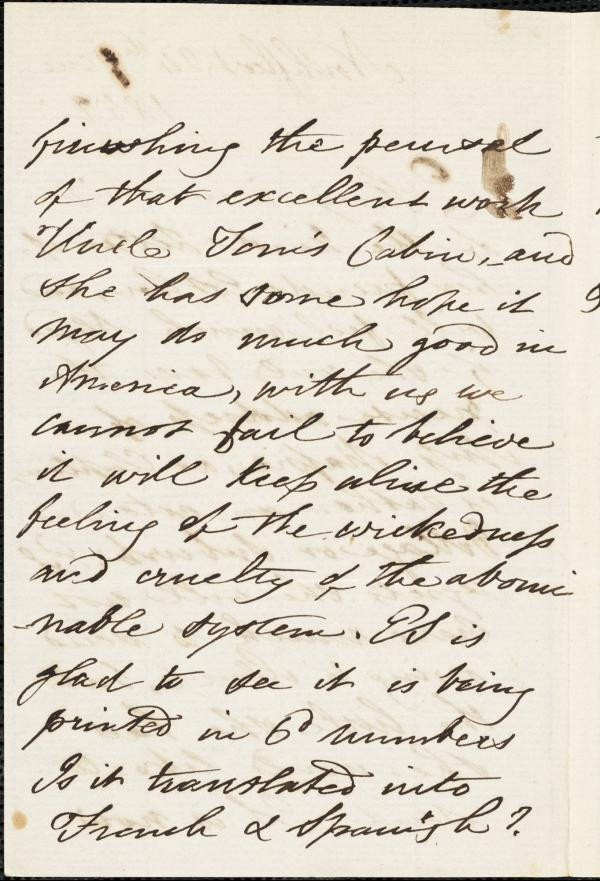 finishing the perusal
of that excellent work
Uncle Tom's Cabin, and
she has some hope it
may do much good in
America, with us we
cannot fail to believe
it will keep alive the
feeling of the wickedness
and cruelty of the abomi
-nable system. ES is
glad to see it is being
printed in 6d numbers
Is it translated into
French & Spanish?